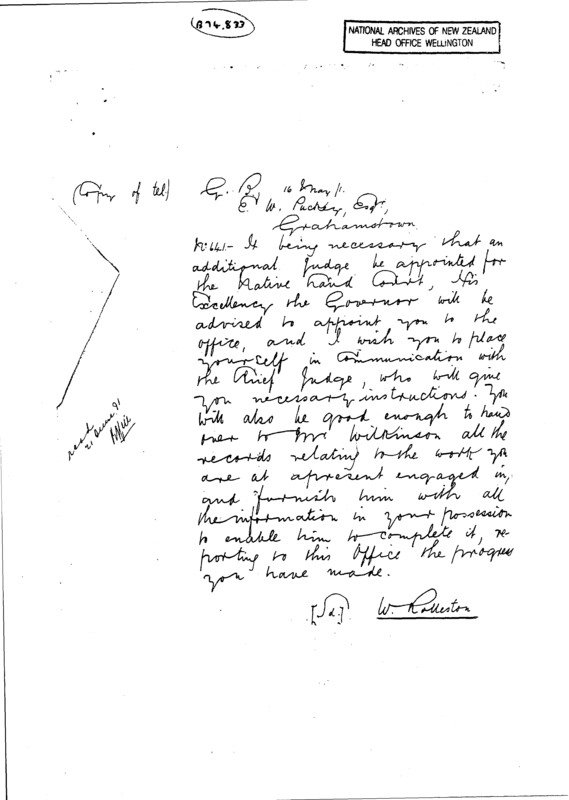 B74.833
NATIONAL ARCHIVES OF NEW ZEALAND
HEAD OFFICE WELLINGTON
(Copy of tel)
16 May
E. W. Puckey, Esqr,
Grahamstown
It being necessary that an
additional Judge be appointed for
the Native Land Court, His
Excellency the Governor will be
advised to appoint you to the
office, and I wish you to place
yourself in Communication with
the Chief Judge, who will give
you necessary instructions. You
will also be good enough to hand
over to Mr Wilkinson all the
records relating to the work you
are at apresent engaged in,
and furnish him with all
the information in your possession
to enable him to complete it, re-
porting to this Office the progress
you have made.
[Sd.] W. Rolleston